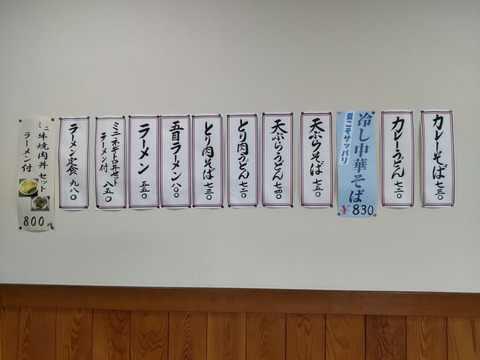 カレーそば 七三〇
カレーうどん 七二〇
冷し中華そば
夏こそサッパリ
¥830
天ぷらそば 七五〇
天ぷらうどん 七四〇
とり肉うどん 七二〇
とり肉そば 七三〇
五目ラーメン
ラーメン 五五〇
ミニネギトロ丼セット
ラーメン付 八五〇
ラーメン定食 九八〇
ミニ牛焼肉丼セット
ラーメン付
800